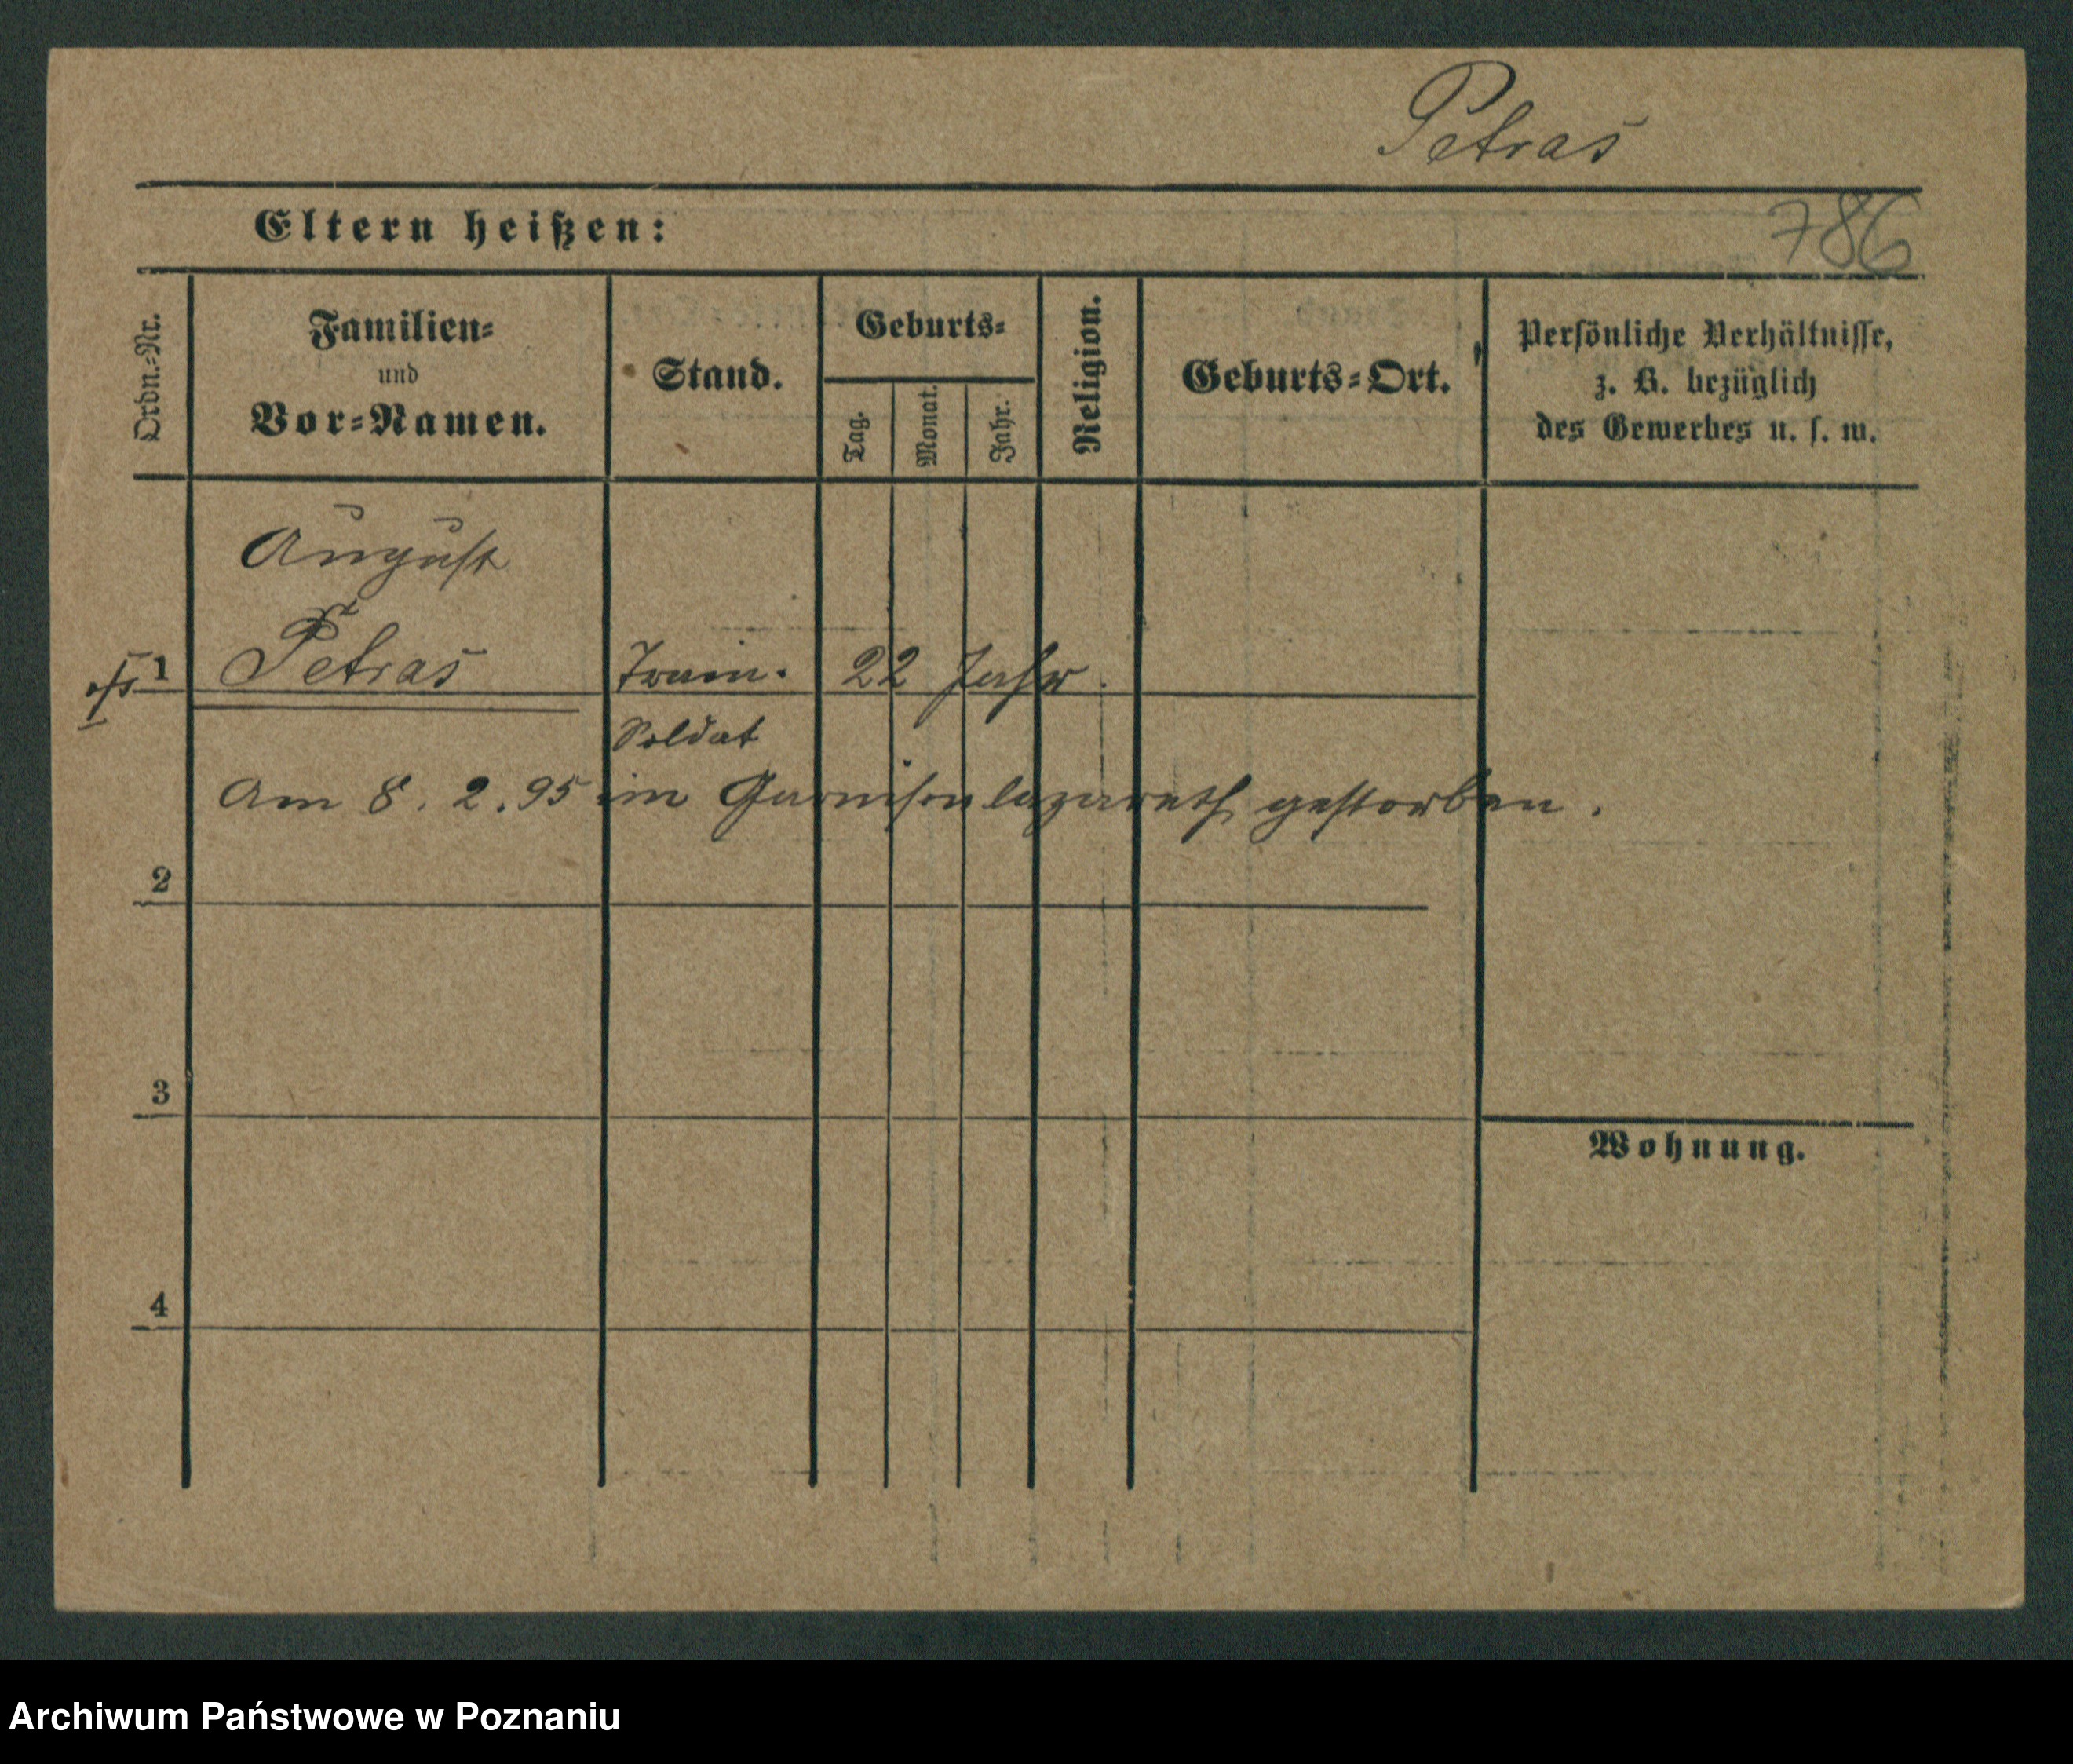 Petras
Eltern heißen:
786
Ordn.-Nr.
Familien-
und
Vor-Namen.
Stand.
Geburts-
Tag.
Monat.
Jahr.
Religion.
Geburts-Ort.
Persönliche Verhältnisse,
z. B. bezüglich
des Gewerbes u. s. w.
August
1 Petras Train. 22 Jahr.
Soldat
Am 8. 2. 95 im Garnisonlazareth gestorben.
2
3
Wohnung.
4
Archiwum Państwowe w Poznaniu